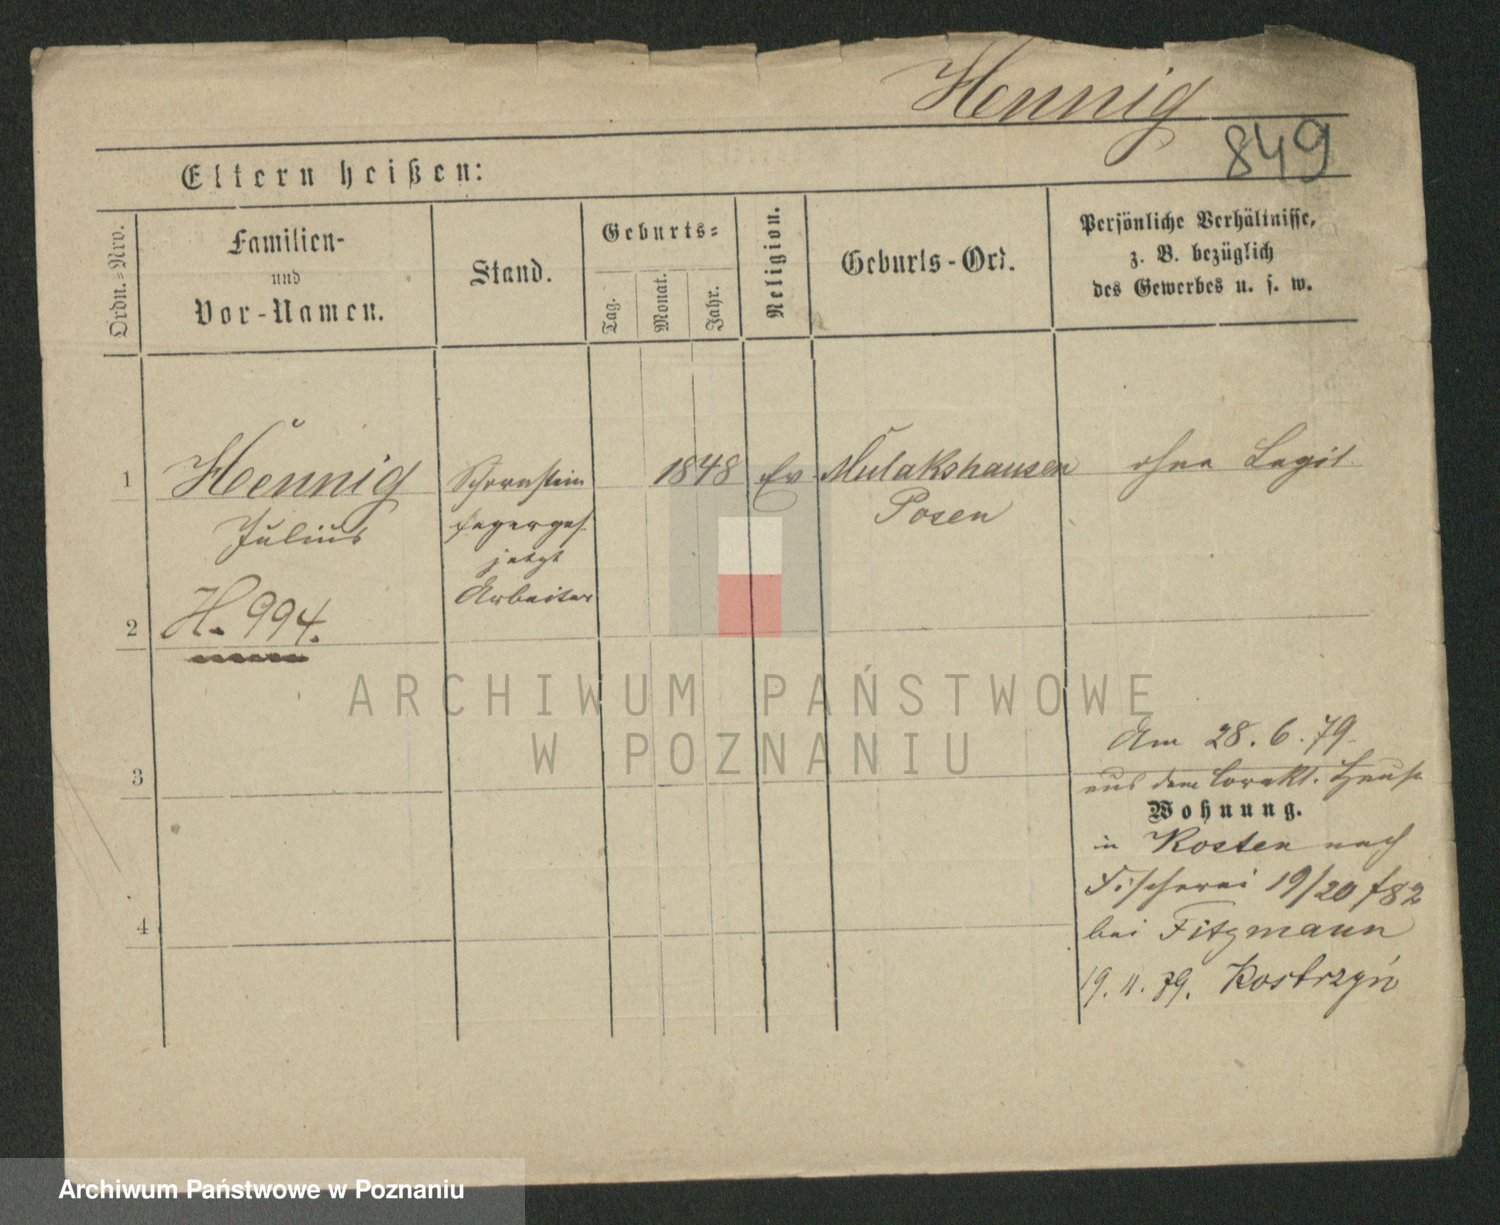 Hennig
849
Eltern heißen:
Ordn.=Nro.
Familien-
und
Vor-Namen.
Stand.
Geburts=
Tag.
Monat.
Jahr.
Religion.
Geburts-Ort.
Persönliche Verhältnisse,
z. B. bezüglich
des Gewerbes u. s. w.
1 Hennig Schornstein 1848 Ev Mulakshausen ohne Legit
Julius fegerges. Posen
jetzt
2 H. 994. Arbeiter
ARCHIWUM PAŃSTWOWE
W POZNANIU
Am 28.6.79.
3
aus dem Corekt. Hause
Wohnung.
in Kosten nach
Fischerei 19/20 /82
4
bei Fitzmann
19. 11. 79. Kostrzyń
Archiwum Państwowe w Poznaniu